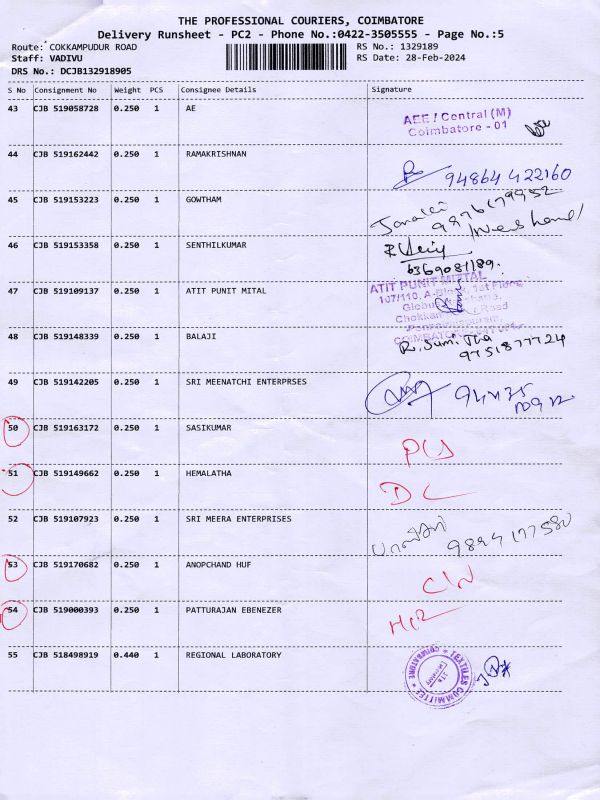 THE PROFESSIONAL COURIERS, COIMBATORE
Delivery Runsheet - PC2 - Phone No.:0422-3505555 - Page No.:5
Route: COKKAMPUDUR ROAD RS No.: 1329189
Staff: VADIVU RS Date: 28-Feb-2024
DRS No.: DCJB132918905
S No Consignment No Weight PCS Consignee Details Signature
43 CJB 519058728 0.250 1 AE
AEE / Central (M)
Coimbatore - 01
44 CJB 519162442 0.250 1 RAMAKRISHNAN
94864 422160
45 CJB 519153223 0.250 1 GOWTHAM
Janaki
46 CJB 519153358 0.250 1 SENTHILKUMAR
6369081189.
47 CJB 519109137 0.250 1 ATIT PUNIT MITAL
ATIT PUNIT MITTAL
107/110, A-Block, 1st Floor
Road
48 CJB 519148339 0.250 1 BALAJI
R. Sumitha
9751877724
49 CJB 519142205 0.250 1 SRI MEENATCHI ENTERPRSES
50 CJB 519163172 0.250 1 SASIKUMAR
51 CJB 519149662 0.250 1 HEMALATHA
DL
52 CJB 519107923 0.250 1 SRI MEERA ENTERPRISES
9894177580
53 CJB 519170682 0.250 1 ANOPCHAND HUF
54 CJB 519000393 0.250 1 PATTURAJAN EBENEZER
55 CJB 518498919 0.440 1 REGIONAL LABORATORY
TEXTILES COMMITTEE * COIMBATORE *